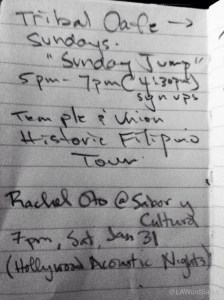 Tribal Cafe →
Sundays.
"Sunday Jump"
5pm - 7pm (4:30pm)
sign ups
Temple & Union
Historic Filipino
Tour
Rachel Oto @ Sabor y
Cultura
7pm, Sat, Jan 31
(Hollywood Acoustic Nights)